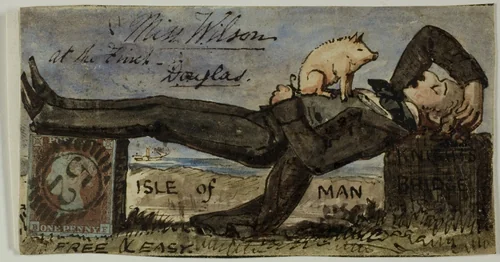 Miss Wilson
at the Finch
Douglas.
ISLE of MAN
KNIGHTS
BRIDGE
ONE PENNY
FREE & EASY.